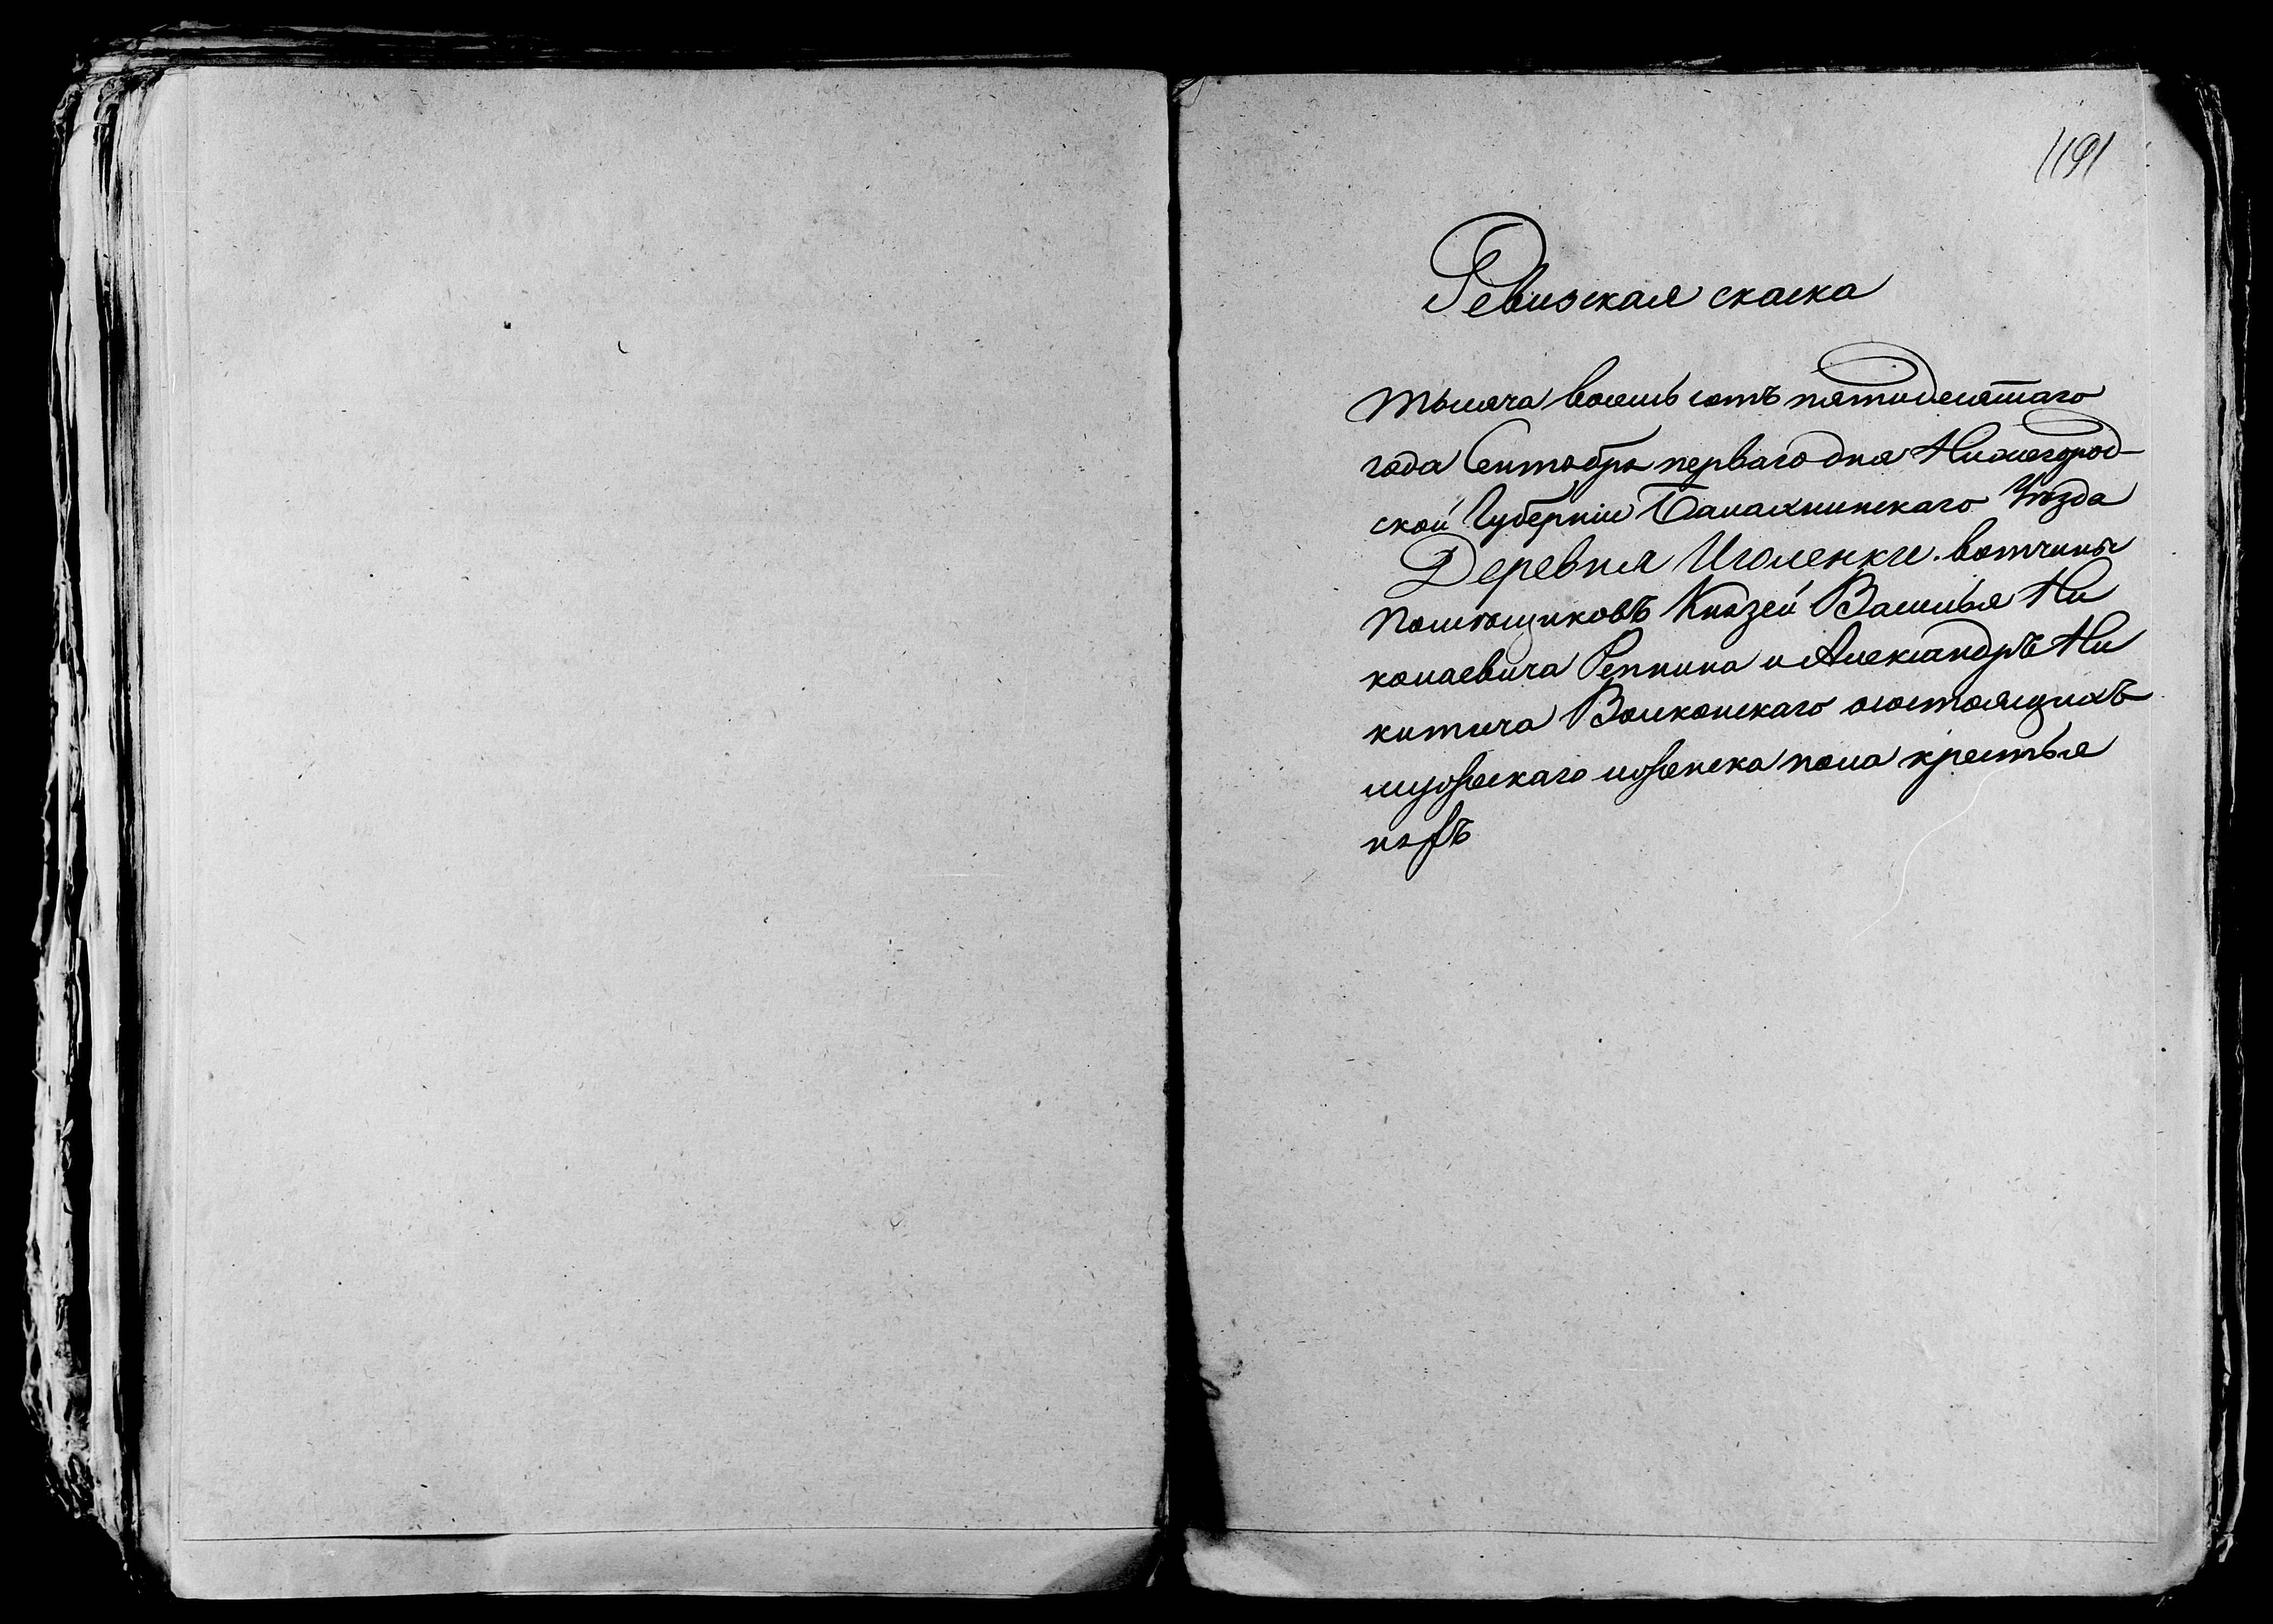 1191
Ревизская скаска
тысяча восемь сотъ пятидесятаго
года Сентября перваго дня Нижегород-
ской Губерніи Балахнинскаго Уѣзда
Деревня Иголенки вотчины
помѣщиковъ Князей Василья Ни
колаевича Репнина и Александръ Ни
китича Волконскаго о состоящихъ
мужескаго и женска пола крестья
нахъ